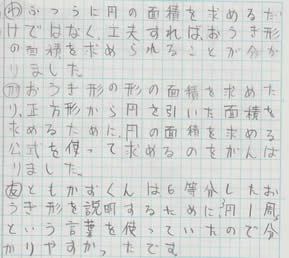 わふつうに円の面積を求めるだ
けではなく、工夫すれば、おうぎ形
の面積を求められることが分か
りました。
がおうぎ形の形の面積を求めた
り、正方形から円を引いた面積を
求めるために、円の面積を求める
公式を使って求めるのをがんば
りました。
友ともかずくんは6等分したお
うぎ形を説明するために、円1周
という言葉を使っていたので分
かりやすかったです。